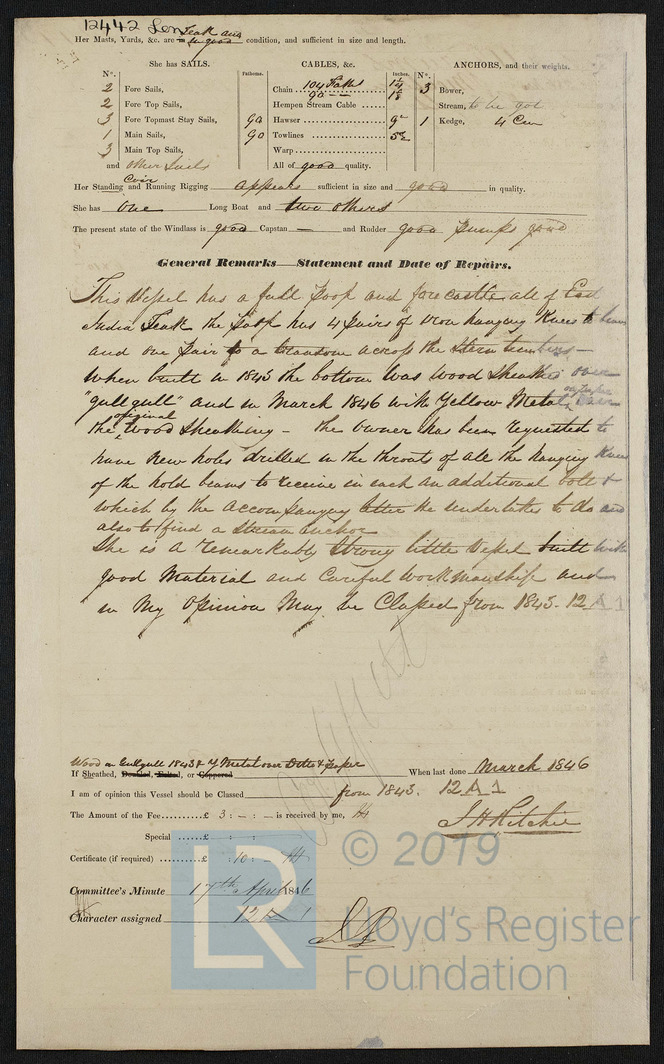 12442 Lon
Teak and
Her Masts, Yards, &c. are in good condition, and sufficient in size and length.
She has SAILS.
CABLES, &c.
ANCHORS, and their weights.
N°.
Fathoms.
Inches.
N°.
2 Fore Sails,
Chain 104 Faths 1 4/8
90 — 1 2/8
3 Bower,
2 Fore Top Sails,
Hempen Stream Cable
Stream, to be got
3 Fore Topmast Stay Sails,
90 Hawser 9"
1 Kedge, 4 Cwt
1 Main Sails,
90 Towlines 5½
3 Main Top Sails,
Warp
and other Sails
All of good quality.
Coir
Her Standing and Running Rigging appears sufficient in size and good in quality.
She has One Long Boat and two others
The present state of the Windlass is good Capstan — and Rudder good Pumps good
General Remarks—Statement and Date of Repairs.
This Vessel has a full Poop and forecastle all of East
India Teak the Poop has 4 pairs of iron hanging Knees to beams
and one pair to a transom across the Stern timbers —
When built in 1843 the bottom was wood sheathed over
"gullgull" and in March 1846 with Yellow Metal, on paper over
the original Wood Sheathing — the owner has been requested to
have new holes drilled in the throats of all the hanging Knees
of the hold beams to receive in each an additional bolt &
which by the accompanying letter he undertakes to do and
also to find a Stream anchor
She is a remarkably Strong little Vessel built with
good Material and Careful Workmanship and
in My Opinion May be Classed from 1843. 12 A 1
Wood on Gullgull 1843 & Y Metal over Ditto & paper
If Sheathed, Doubled, Felted, or Coppered When last done March 1846
I am of opinion this Vessel should be Classed from 1843. 12 A 1
The Amount of the Fee £ 3 : - : - is received by me,
J H Ritchie
Special £ : :
Certificate (if required) £ : 10 : -
Committee's Minute 17th April 1846
Character assigned 12 A 1
© 2019
LR
Lloyd's Register
Foundation